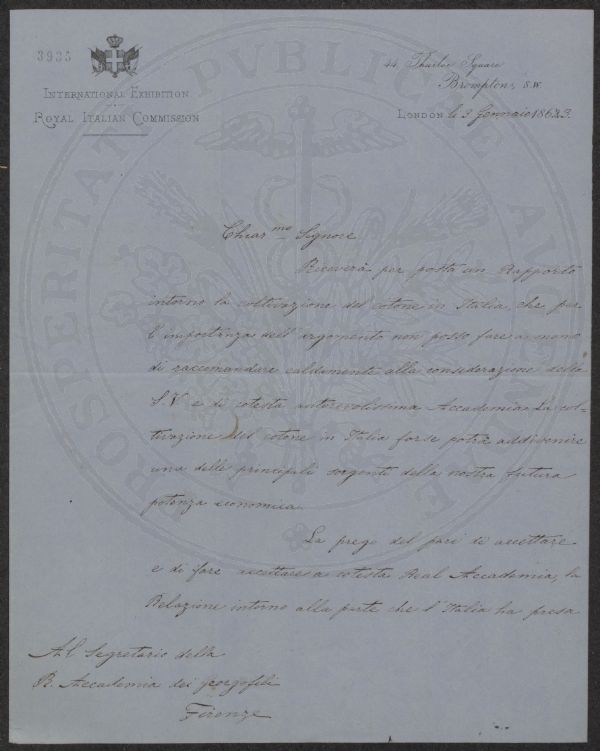 3935
INTERNATIONAL EXHIBITION
ROYAL ITALIAN COMMISSION
44 Thurloe Square
Brompton, S.W.
LONDON li 3 Gennaio 1863.
PROSPERITATI PUBLICAE AUGENDAE
Chiar.mo Signore
Riceverà per posta un Rapporto
intorno la coltivazione del cotone in Italia, che per
l'importanza dell'argomento non posso fare a meno
di raccomandare caldamente alla considerazione della
S.V. e di cotesta autorevolissima Accademia. La col-
tivazione del cotone in Italia forse potrà addivenire
una delle principali sorgenti della nostra futura
potenza economica.
La prego del pari di accettare
e di fare accettare a cotesta Real Accademia, la
Relazione intorno alla parte che l'Italia ha presa
Al Segretario della
R. Accademia dei georgofili
Firenze